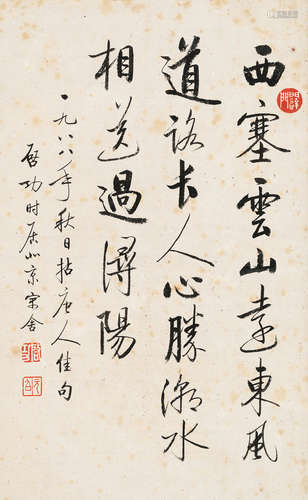 西塞雲山遠東風
道路長人心勝潮水
相送過潯陽
一九八八年秋日拈唐人佳句
啟功时居北京舍